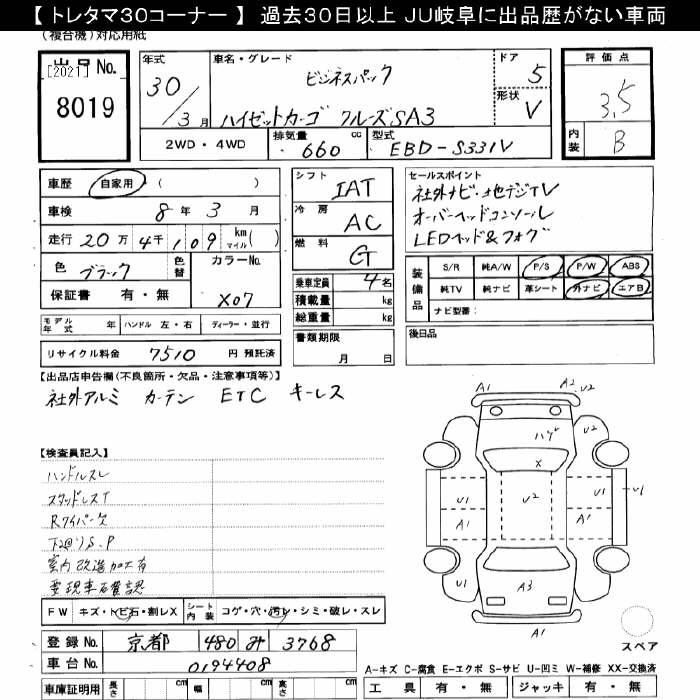 【 トレタマ30コーナー 】 過去30日以上 JU岐阜に出品歴がない車両
(複合機)対応用紙
出品No.
[2021]
8019
年式
30/3月
車名・グレード
ビジネスパック
ハイゼットカーゴ クルーズSA3
ドア
5
形状
V
評価点
3.5
内装
B
2WD・4WD
排気量
660 cc
型式
EBD-S331V
車歴 自家用 ( )
車検 8年 3月
走行 20万 4千 109 km マイル( )
色 ブラック 色替
カラーNo.
X07
保証書 有・無
モデル年式 年 ハンドル 左・右 ディーラー・並行
リサイクル料金 7510 円 預託済
シフト
IAT
冷房
AC
燃料
G
乗車定員 4名
積載量 kg
総重量 kg
書類期限
月 日
セールスポイント
社外ナビ・地デジTV
オーバーヘッドコンソール
LEDヘッド&フォグ
装備品
S/R 純A/W P/S P/W ABS
純TV 純ナビ 革シート 外ナビ エアB
ナビ型番:
後日品
【出品店申告欄(不良箇所・欠品・注意事項等)】
社外アルミ カーテン ETC キーレス
【検査員記入】
ハンドルスレ
スタッドレスT
Rワイパー欠
下回りS.P
室内改造加工有
要現車確認
FW キズ・トビ石・割レX シート内装 コゲ・穴・汚レ・シミ・破レ・スレ
登録No. 京都 480 み 3768
車台No. 0194408
車庫証明用 長さ cm 幅 cm 高さ cm
A1 A2 U2
ハゲ U2
X
U1 U2 U1 U1
A1 A1
U2 A3 U1
A1
スペア
A-キズ C-腐食 E-エクボ S-サビ U-凹ミ W-補修 XX-交換済
工具 有・無 ジャッキ 有・無